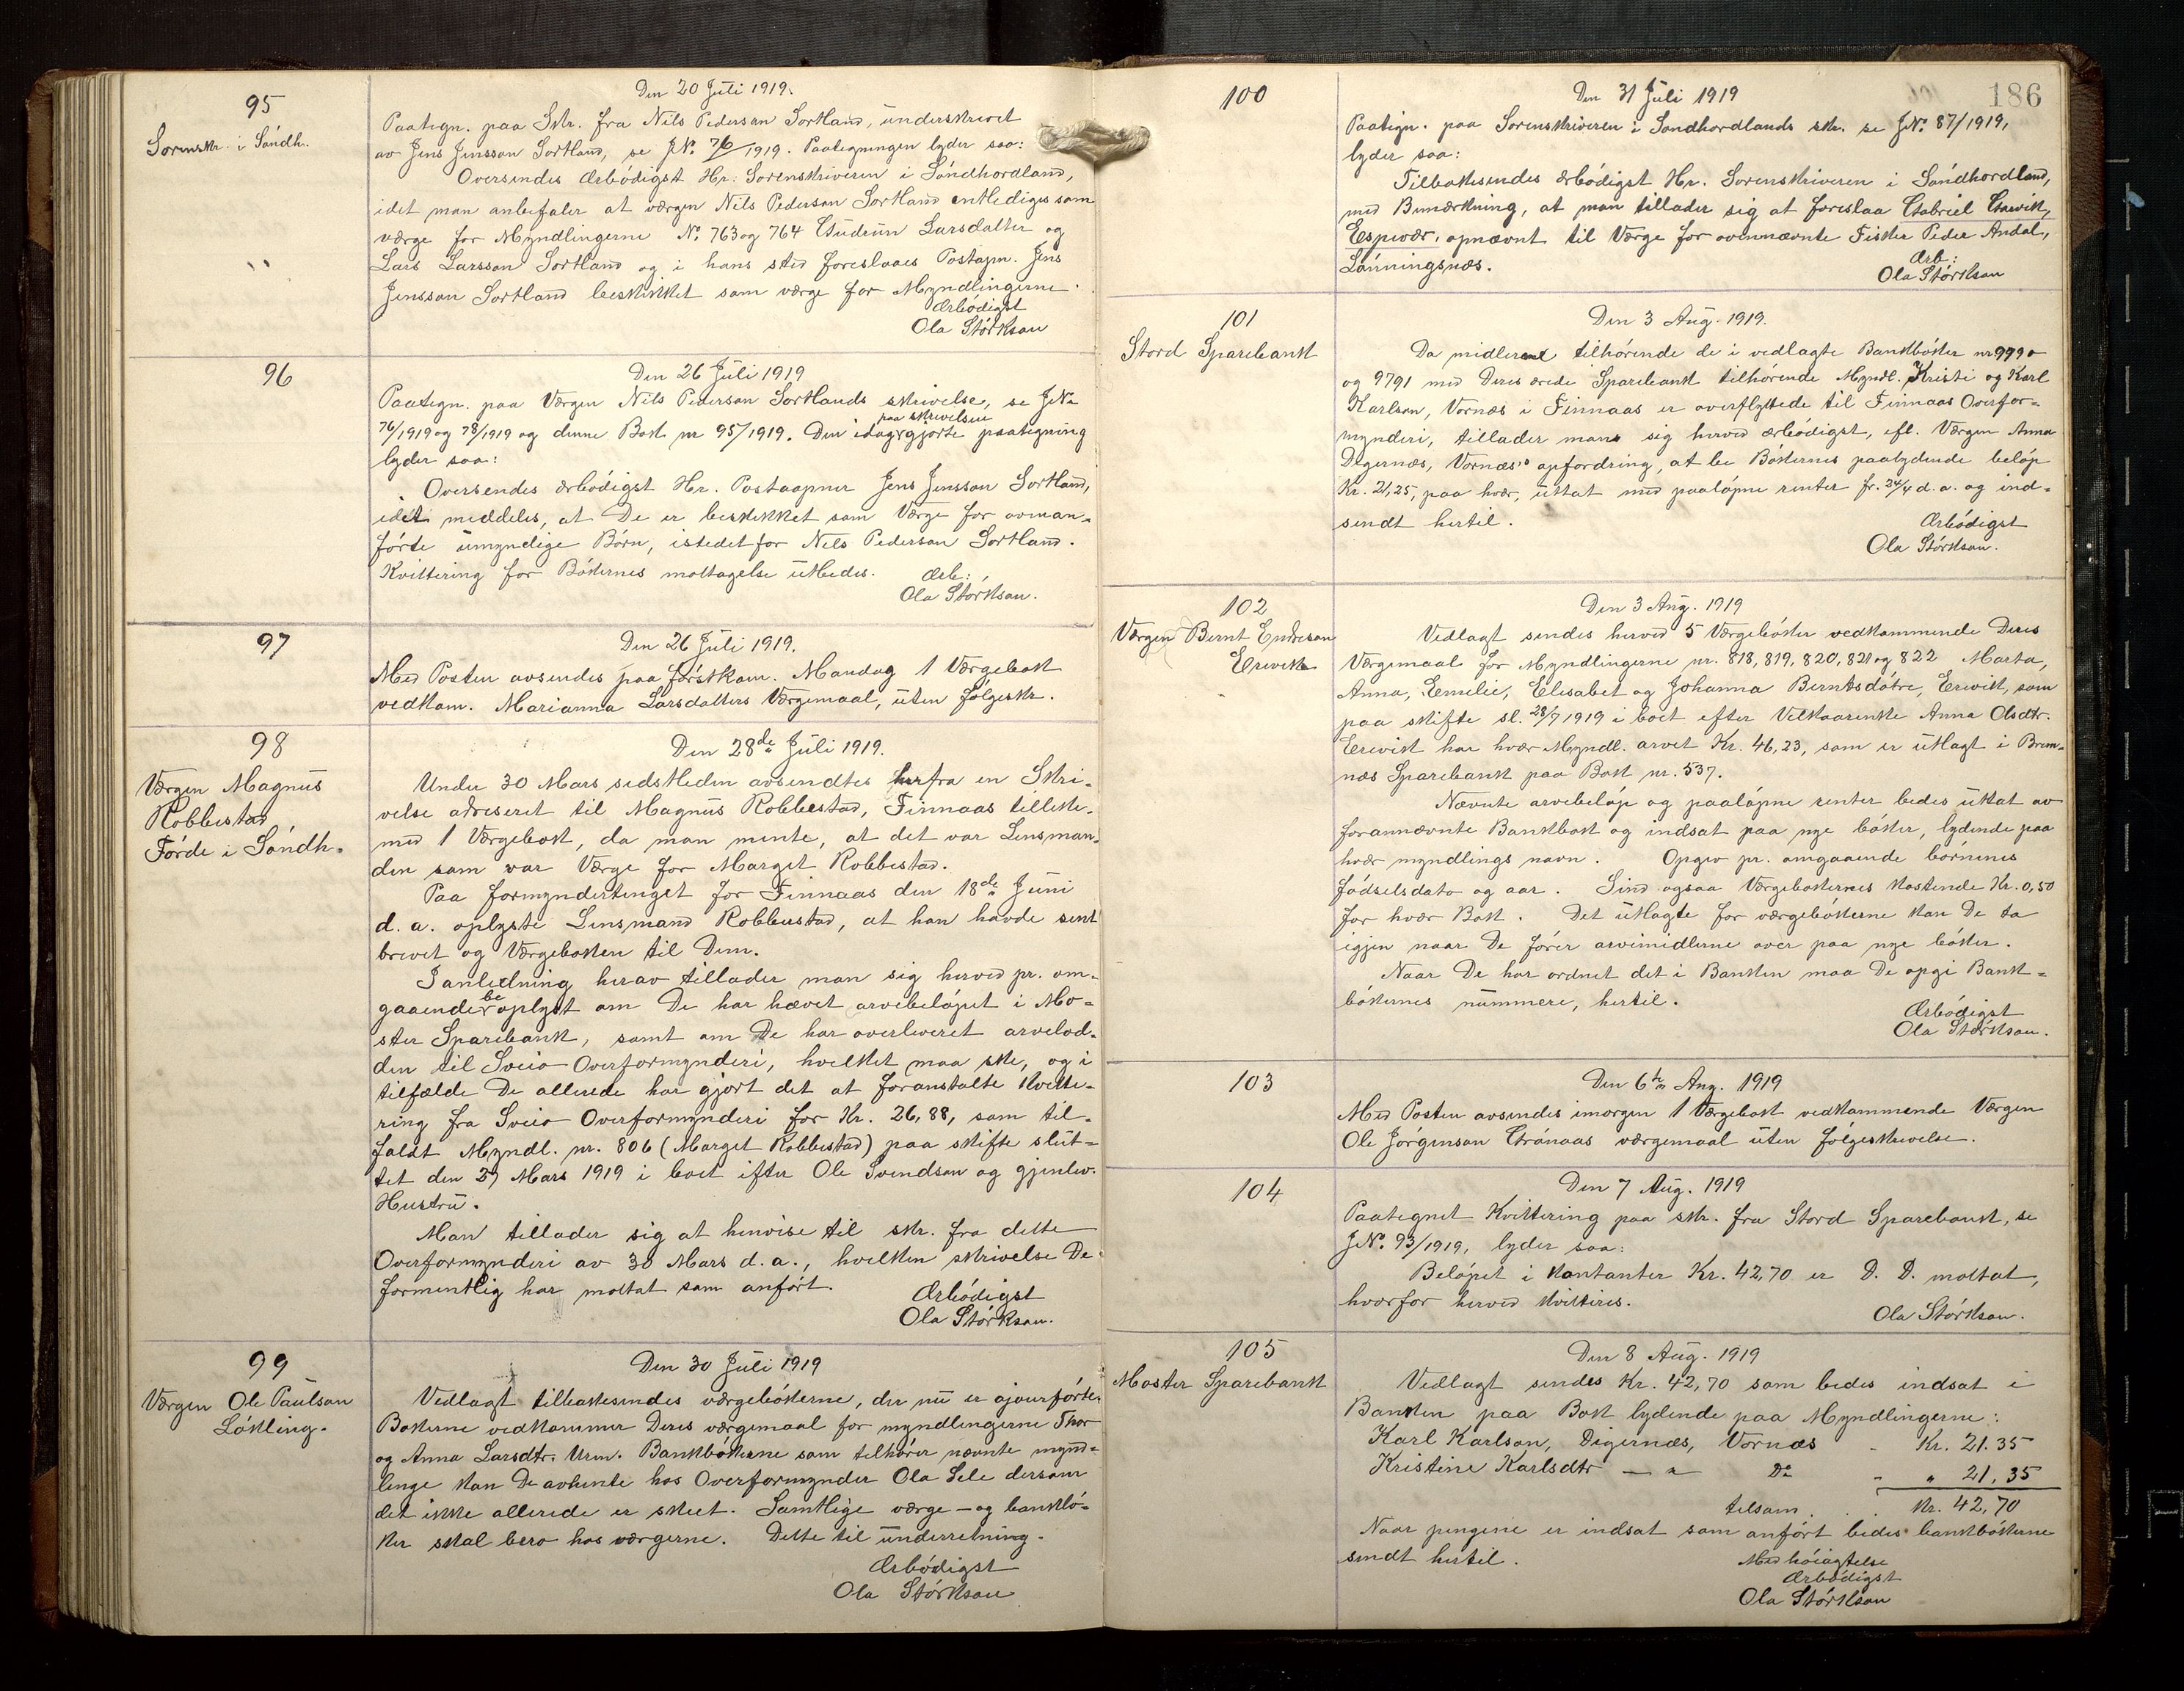 95
Sorenskr. i Söndh.
Den 20 Juli 1919.
Paategn. paa Skr. fra Nils Pederson Sortland, underskrevet
av Jens Jensson Sortland, se J№ 76/1919. Paategningen lyder saa:
Oversendes ærbödigst Hr. Sorenskriveren i Söndhordland,
idet man anbefaler at værgen Nils Pederson Sortland entlediges som
værge for Myndlingerne №. 763 og 764 Gudrun Larsdatter og
Lars Larsson Sortland og i hans sted foreslaaes Postapn. Jens
Jensson Sortland beskikket som værge for Myndlingerne.
Ærbödigst
Ola Störkson
96
Den 26 Juli 1919
Paategn. paa Værgen Nils Pederson Sortlands skrivelse, se J№
76/1919 og 78/1919 og denne Bok nr 95/1919. Den idag paa skrivelsen gjorte paategning
lyder saa:
Oversendes ærbödigst Hr. Postaapner Jens Jensson Sortland,
idet meddeles, at De er beskikket som Værge for ovenan-
förte umyndige Börn, istedetfor Nils Pederson Sortland.
Kvittering for Bökernes mottagelse utbedes. Ærb:
Ola Störkson.
97
Den 26 Juli 1919.
Med Posten avsendes paa förstkom. Mandag 1 Værgebok
vedkom. Marianna Larsdatters Værgemaal, uten fölgeskr.
98
Værgen Magnus
Robbestad
Förde i Söndh.
Den 28de Juli 1919.
Under 30 Mars sidstleden avsendtes herfra en Skri-
velse adreseret til Magnus Robbestad, Finnaas tilleke-
med 1 Værgebok, da man mente, at det var Lensman-
den som var Værge for Marget Robbestad.
Paa formyndertinget for Finnaas den 18de Juni
d. a. oplyste Lensmand Robbestad, at han havde sent
brevet og Værgeboken til Dem.
I anledning herav tillader man sig herved pr. om-
gaaende be oplyst om De har hævet arvebelöpet i Mo-
ster Sparebank, samt om De har overleveret arvelod-
den til Sveio Overformynderi, hvilket maa ske, og i
tilfælde De allerede har gjort det at foranstalte Kvitte-
ring fra Sveio Overformynderi for Kr. 26,88, som til-
faldt Myndl. nr. 806 (Marget Robbestad) paa skifte slut-
tet den 27 Mars 1919 i boet efter Ole Svendson og gjenlev.
Hustru.
Man tillader sig at henvise til skr. fra dette
Overformynderi av 30 Mars d. a., hvilken skrivelse De
formentlig har mottat som anfört.
Ærbödigst
Ola Störkson.
99
Værgen Ole Paulson
Lökling.
Den 30 Juli 1919
Vedlagt tilbakesendes værgebökerne, der nu er ajourförte.
Bökerne vedkommer Deres værgemaal for myndlingerne Thor
og Anna Larsdtr. Urm. Bankbökerne som tilhörer nævnte mynd-
linge kan De avhente hos Overformynder Ola Sele dersom
det ikke allerede er skeet. Samtlige værge - og bankbö-
ker skal bero hos værgerne. Dette til underretning.
Ærbödigst
Ola Störkson
186
100
Den 31 Juli 1919
Paategn. paa Sorenskriveren i Sondhordlands skr. se J№. 87/1919,
lyder saa:
Tilbakesendes ærbödigst Hr. Sorenskriveren i Söndhordland,
med Bemærkning, at man tillader sig at foreslaa Gabriel
Espevær, opnævnt til Værge for ovennævnte Fisker Peder Andal,
Lönningsnæs.
Ærb:
Ola Störkson
101
Stord Sparebank
Den 3 Aug. 1919.
Da midlerne tilhörende de i vedlagte Bankböker nr 9790
og 9791 med Deres ærede Sparebank tilhörende Myndl. Kristi og Karl
Karlson, Vornæs i Finnaas er overflyttede til Finnaas Overfor-
mynderi, tillader man sig herved ærbödigst, efl. Værgen Anna
Digernæs, Vornæs's opfordring, at be Bökernes paalydende belöp
Kr. 21,25, paa hver, uttat med paalöpne renter fr. 24/4 d. a. og ind-
sendt hertil.
Ærbödigst
Ola Störkson.
102
Værgen Bernt Endreson
Ervik
Den 3 Aug. 1919
Vedlagt sendes herved 5 Værgeböker vedkommende Deres
Værgemaal for Myndlingerne nr. 818, 819, 820, 821 og 822 Marta,
Anna, Emilie, Elisabet og Johanna Berntsdötre, Ervik, som
paa skifte sl. 28/7 1919 i boet efter Velkaarenke Anna Olsdtr.
Ervik har hver Myndl. arvet Kr. 46,23, som er utlagt i Brem-
næs Sparebank paa Bok nr. 537.
Nævnte arvebelöp og paalöpne renter bedes uttat av
forannævnte Bankbok og indsat paa nye böker, lydende paa
hver myndlings navn. Opgiv pr. omgaaende börnenes
födselsdato og aar. Sind ogsaa Værgebokernes kostende Kr. 0,50
for hver Bok. Det utlagte for værgebökerne kan De ta
igjen naar De förer arvemidlerne over paa nye böker.
Naar De har ordnet det i Banken maa De opgi Bank-
bökernes nummere, hertil.
Ærbödigst
Ola Störkson.
103
Den 6te Aug. 1919
Med Posten avsendes imorgen 1 Værgebok vedkommende Værgen
Ole Jörgenson Grönaas værgemaal uten fölgeskrivelse.
104
Den 7 Aug. 1919
Paategnet Kvittering paa skr. fra Stord Sparebank, se
J№. 93/1919, lyder saa:
Belöpet i kontanter Kr. 42,70 er D. D. mottat,
hvorfor herved kvitteres.
Ola Störkson.
105
Moster Sparebank
Den 8 Aug. 1919
Vedlagt sendes Kr. 42,70 som bedes indsat i
Banken paa Bok lydende paa Myndlingerne:
Karl Karlson, Digernæs, Vornæs - Kr. 21.35
Kristine Karlsdtr — " — Do - " 21.35
tilsam. . Kr. 42,70
Naar pengene er indsat som anfört bedes bankbökerne
sendt hertil.
Med höiagtelse
Ærbödigst
Ola Störkson